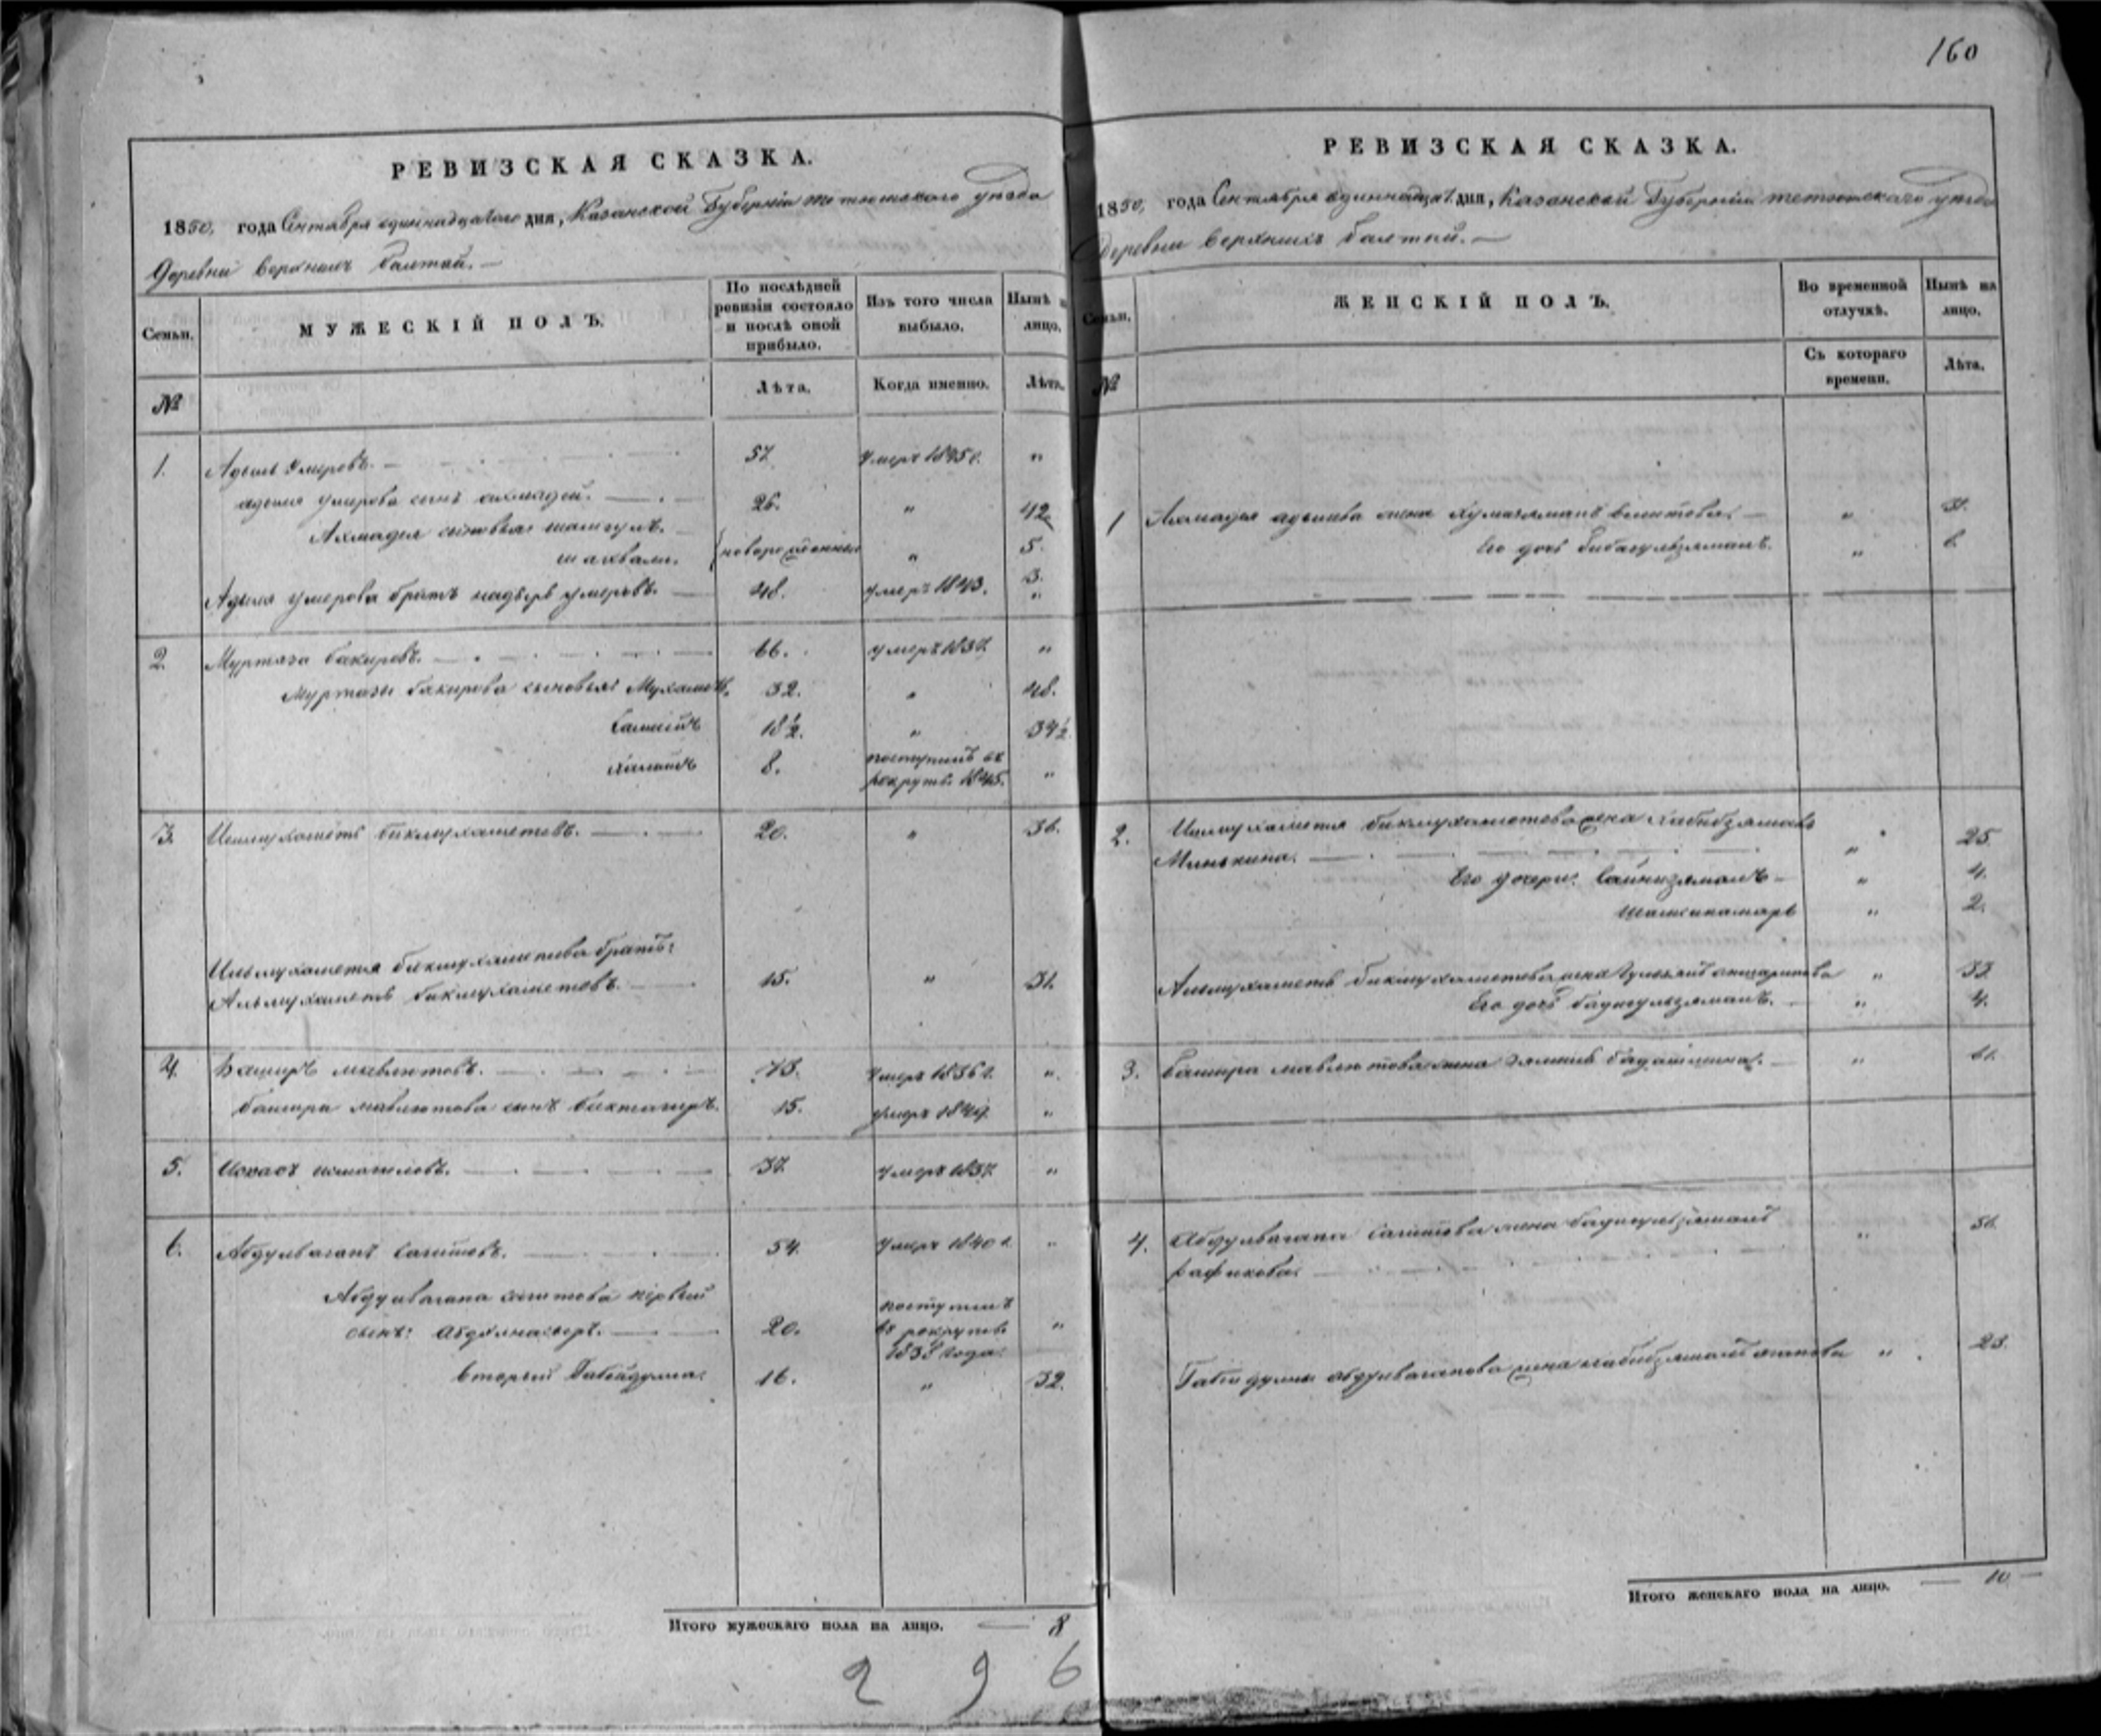 160
РЕВИЗСКАЯ СКАЗКА.
1850, года Сентября одиннадцатого дня, Казанской Губерніи тетюшскаго уѣзда
Деревни Верхнихъ балтай. —
Семьи. МУЖЕСКІЙ ПОЛЪ. По послѣдней ревизіи состояло и послѣ оной прибыло. Изъ того числа выбыло. Нынѣ на лицо.
№ Лѣта. Когда именно. Лѣта.
1. Адыль Умеровъ. — 57. умеръ 1845 г. "
адыля умерова сынъ ахмадей. — 26. " 42
Ахмадея сыновья: шамгулъ. — новорожденные " 5.
шахвали. 3.
Адыля умерова братъ надыръ умеровъ. — 48. умеръ 1843. "
2. Муртаза бакировъ. — 66. умеръ 1837. "
Муртазы бакирова сыновья: Мухаметъ. 32. " 48.
Самеитъ 18½. " 34½
халитъ 8. поступилъ въ
рекруты. 1845. "
3. Ишмухаметъ бикмухаметовъ. — 20. " 36.
Ишмухаметя бикмухаметова братъ:
Альмухаметъ бикмухаметовъ. — 15. " 31.
4. Баширъ мавлютовъ. — 73. умеръ 1836 г. "
башира мавлютова сынъ бикташиръ. 15. умеръ 1849. "
5. Исхакъ исмагиловъ. — 37. умеръ 1837. "
6. Абдулваганъ сагитовъ. — 54. умеръ 1840 г. "
Абдулвагапа сагитова первый
сынъ: абдулнасыръ. — 20. поступилъ
въ рекруты.
1838 года. "
второй Габейдулла. 16. " 32.
Итого мужескаго пола на лицо. — 8
2 9 6
РЕВИЗСКАЯ СКАЗКА.
1850, года Сентября одиннадцат. дня, Казанской Губерніи тетюшскаго уѣзда
Деревни Верхнихъ балтай. —
Семьи. ЖЕНСКІЙ ПОЛЪ. Во временной отлучкѣ. Нынѣ на лицо.
№ Съ котораго времени. Лѣта.
1 Ахмадея адылева жена — "
Его дочь бибигульзямалъ. " 6.
2. Ишмухаметя бикмухаметова жена хабибзямалъ
Минькина. — " 25.
Его дочери: Сайнизямалъ — " 4.
шамсикамаръ " 2.
Альмухаметя бикмухаметова жена " 33.
Его дочь бадигульзямалъ. — " 4.
3. башира мавлютова жена — " 61.
4. Абдулвагапа сагитова жена бадигульзямалъ
рафикова. — " 56.
Габейдуллы абдулвагапова жена хабибзямалъ " 23.
Итого женскаго пола на лицо. — 10 —